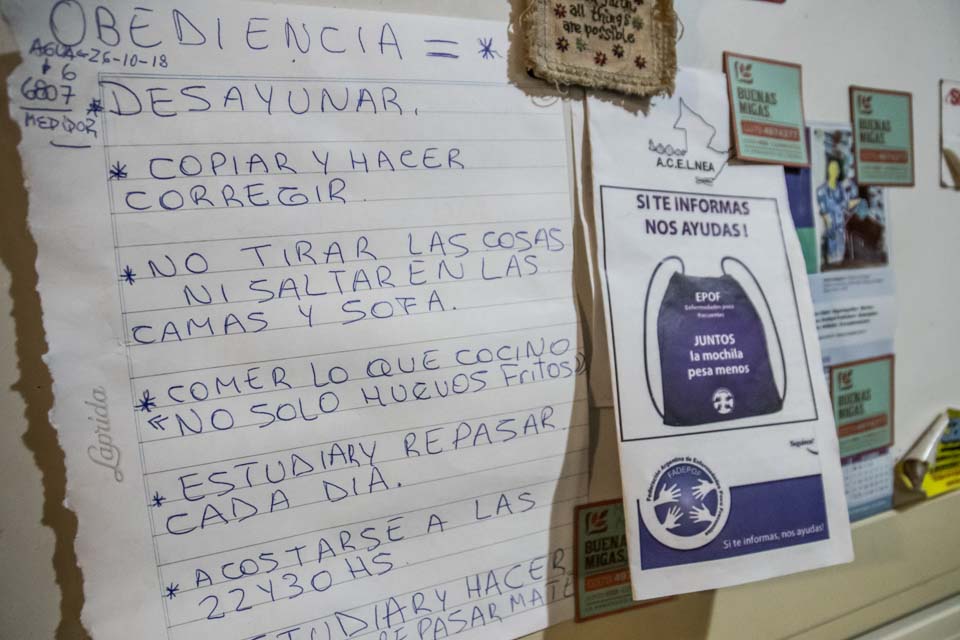 OBEDIENCIA = *
AGUA-26-10-18
6
6807
MEDIDOR
* DESAYUNAR.
* COPIAR Y HACER
CORREGIR.
* NO TIRAR LAS COSAS
NI SALTAR EN LAS
CAMAS Y SOFA.
* COMER LO QUE COCINO
"NO SOLO HUEVOS Fritos"
* ESTUDIAR Y REPASAR
CADA DIA.
* ACOSTARSE A LAS
22Y30 HS.
ESTUDIAR Y HACER
REPASAR MATE
Laprida
all things
are possible
A.C.E.L.NEA
SI TE INFORMAS
NOS AYUDAS!
EPOF
Enfermedades poco
frecuentes
JUNTOS
la mochila
pesa menos
Seguinos!
FADEPOF
Si te informas, nos ayudas!
BUENAS
MIGAS
BUENAS
MIGAS
BUENAS
MIGAS
BUENAS
MIGAS